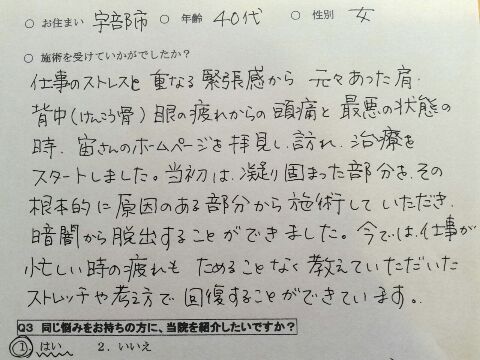 ○ お住まい 宇部市 ○ 年齢 40代 ○ 性別 女
○ 施術を受けていかがでしたか?
仕事のストレスと重なる緊張感から 元々あった肩・
背中(けんこう骨)眼の疲れからの頭痛と最悪の状態の
時、宙さんのホームページを拝見し、訪れ、治療を
スタートしました。当初は、凝り固まった部分を、その
根本的に原因のある部分から施術していただき、
暗闇から脱出することができました。今では、仕事が
忙しい時の疲れも ためることなく教えていただいた
ストレッチや考え方で回復することができています。
Q3 同じ悩みをお持ちの方に、当院を紹介したいですか?
1. はい 2. いいえ